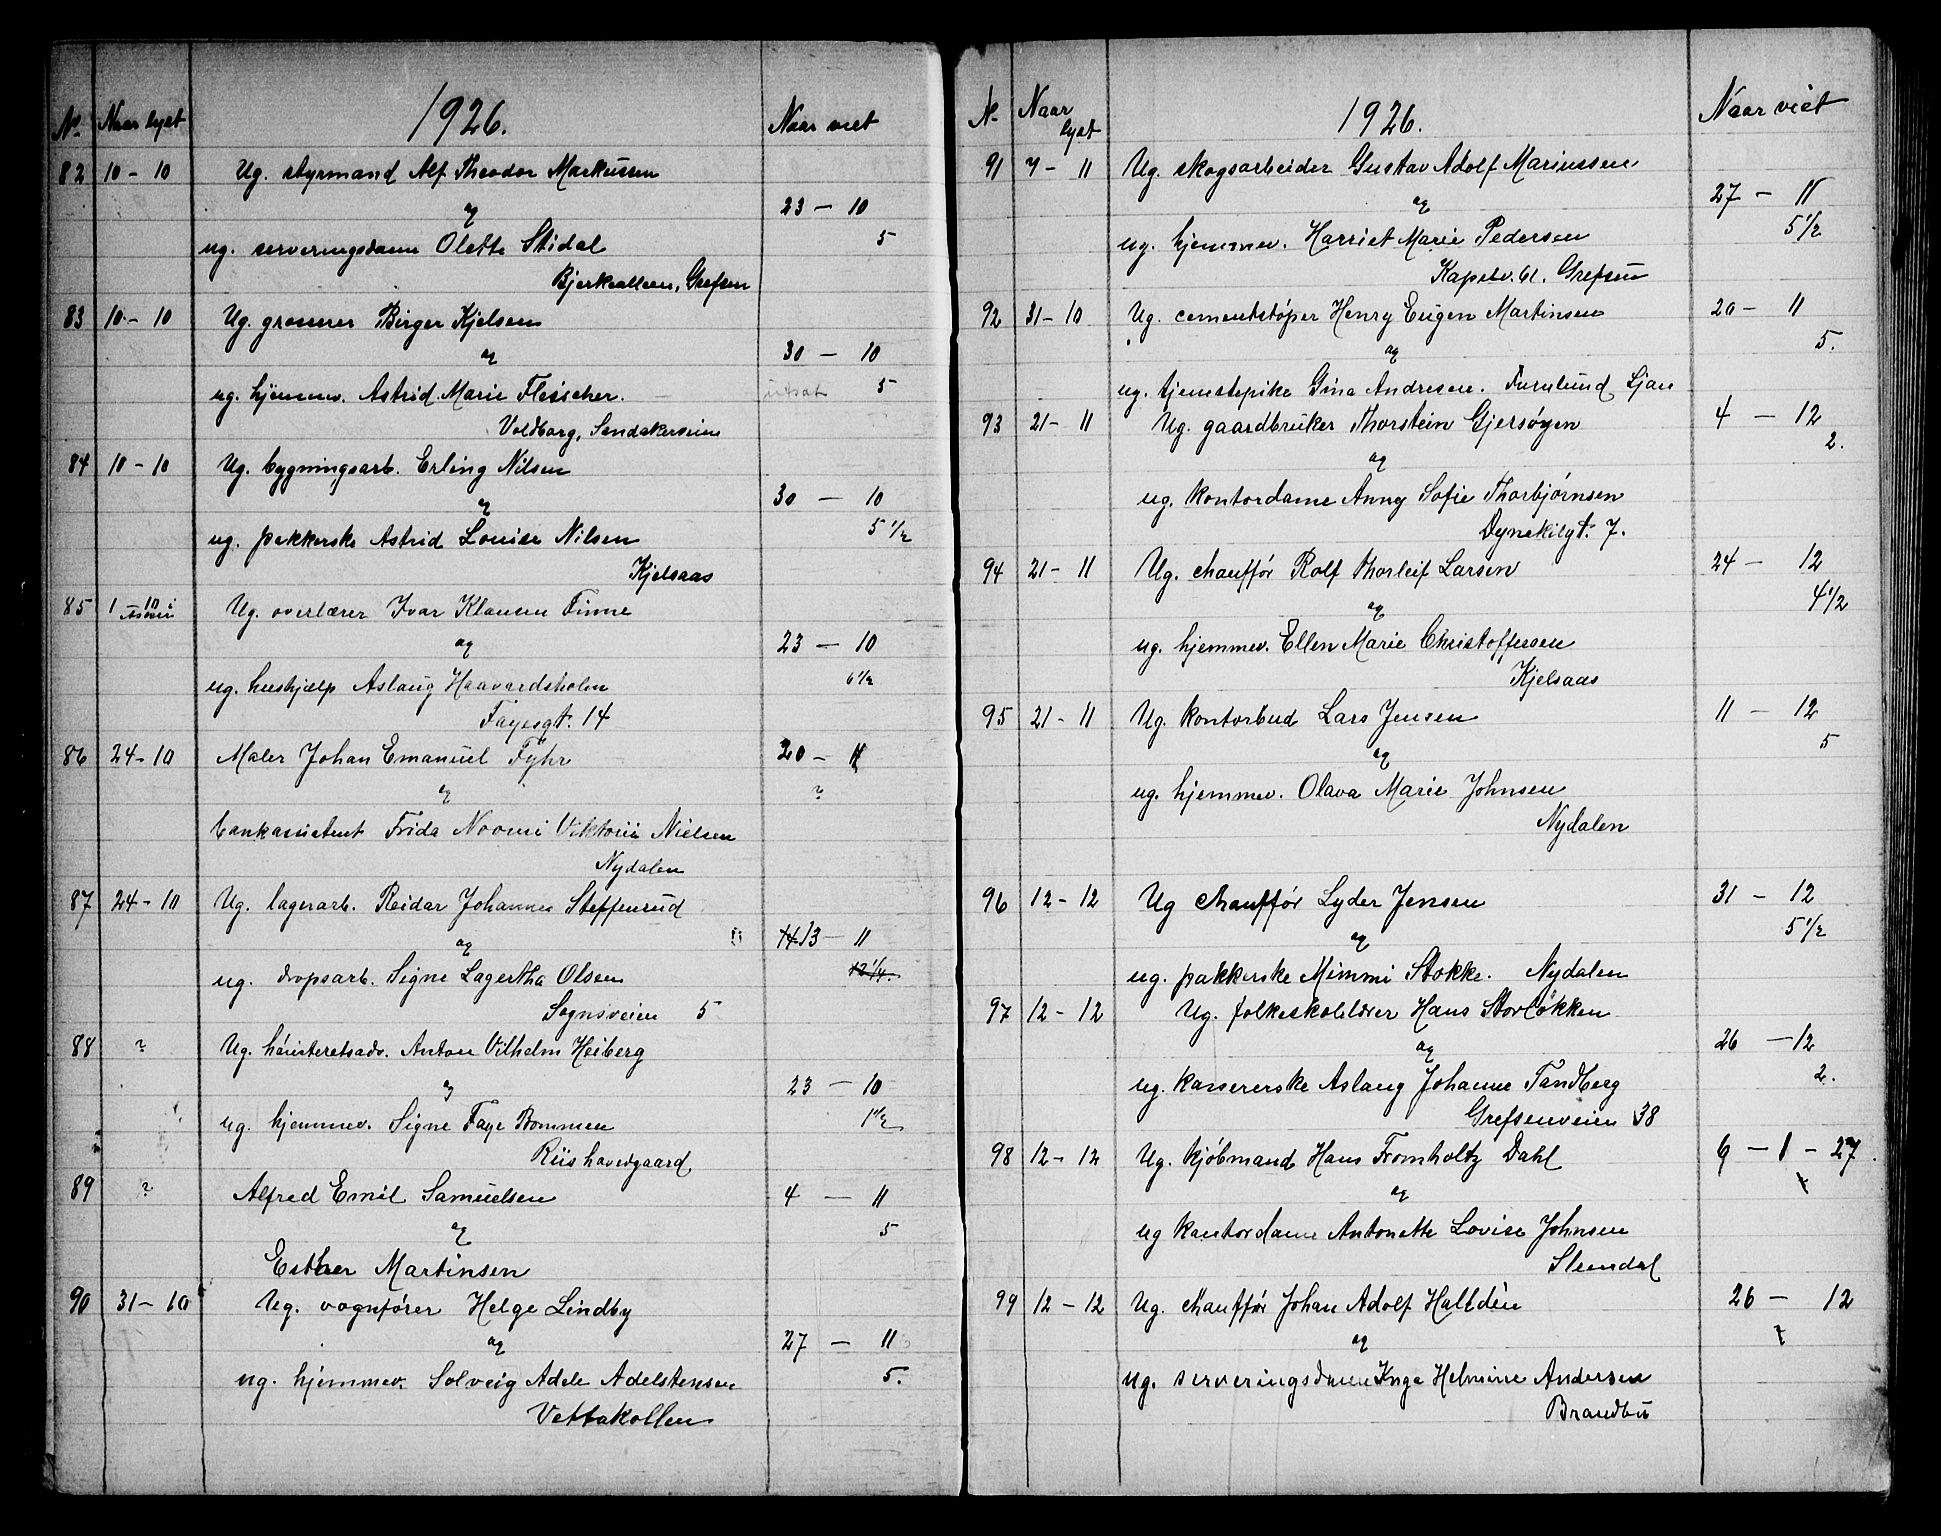 No. Naar lyst 1926. Naar viet
82 10 – 10 Ug. styrmand Alf Theodor Markussen
og 23 – 10
ug. serveringsdame Olette Stidal 5
Bjerkealleen, Grefsen
83 10 – 10 Ug. grosserer Birger Kjelsen
og 30 – 10
ug. hjemmev. Astrid Marie Fleischer. utsat 5
Voldborg, Sandakerveien
84 10 – 10 Ug. bygningsarb. Erling Nilsen
og 30 – 10
ug. pakkerske Astrid Louise Nilsen 5 1/2
Kjelsaas
85 1 – 10 i Asker Ug. overlærer Ivar Klausen Finne
og 23 – 10
ug. hushjælp Aslaug Haavardsholm 6 1/2
Fayesgt. 14
86 24 – 10 Maler Johan Emanuel Fyhr 20 – 11
og ?
bankassistent Frida Noomi Viktoria Nielsen
Nydalen
87 24 – 10 Ug. lagerarb. Reidar Johannes Steffensrud
og 14 13 – 11
ug. dropsarb. Signe Lagertha Olsen 12 1/4
Sognsveien 5
88 ? Ug. höiesteretsadv. Anton Vilhelm Heiberg
og 23 – 10
ug. hjemmev. Signe Faye Bommen 1 1/2
Riis hovedgaard
89 ? Alfred Emil Samuelsen 4 – 11
og 5
Esther Martinsen
90 31 – 10 Ug. vognfører Helge Lindby
og 27 – 11
ug. hjemmev. Solveig Adele Adelstensen 5.
Vettakollen
N. Naar lyst 1926. Naar viet
91 7 – 11 Ug. skogsarbeider Gustav Adolf Mariussen
og 27 – 11
ug. hjemmev. Harriet Marie Pedersen 5 1/2
Kapelv. 61. Grefsen
92 31 – 10 Ug. cementstøper Henry Eugen Martinsen 20 – 11
og 5.
ug. tjenestepike Gina Andresen. Furulund Ljan
93 21 – 11 Ug. gaardbruker Thorstein Gjersøyen 4 – 12
og 2.
ug. kontordame Anny Sofie Thorbjørnsen
Dynekilgt. 7.
94 21 – 11 Ug. chauffór Rolf Thorleif Larsen 24 – 12
og 4 1/2
ug. hjemmev. Ellen Marie Christoffersen
Kjelsaas
95 21 – 11 Ug. kontorbud Lars Jensen 11 – 12
og 5
ug. hjemmev. Olava Marie Johnsen
Nydalen
96 12 – 12 Ug chauffór Lyder Jensen 31 – 12
og 5 1/2
ug. pakkerske Mimmi Stokke. Nydalen
97 12 – 12 Ug. folkeskolelærer Hans Storløkken
og 26 – 12
ug. kassererske Aslaug Johanne Tandberg 2.
Grefsenveien 38
98 12 – 12 Ug. kjøbmand Hans Fromholtz Dahl 6 – 1 – 27.
og
ug kontordame Antonette Lovise Johnsen
Slemdal
99 12 – 12 Ug. chauffór Johan Adolf Halldén 26 – 12
og
ug. serveringsdame Inga Helmine Andersen
Brandbu